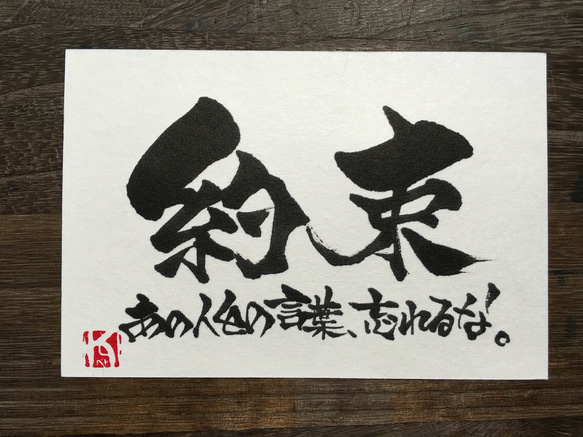 約束
あの人との言葉、忘れるな!。